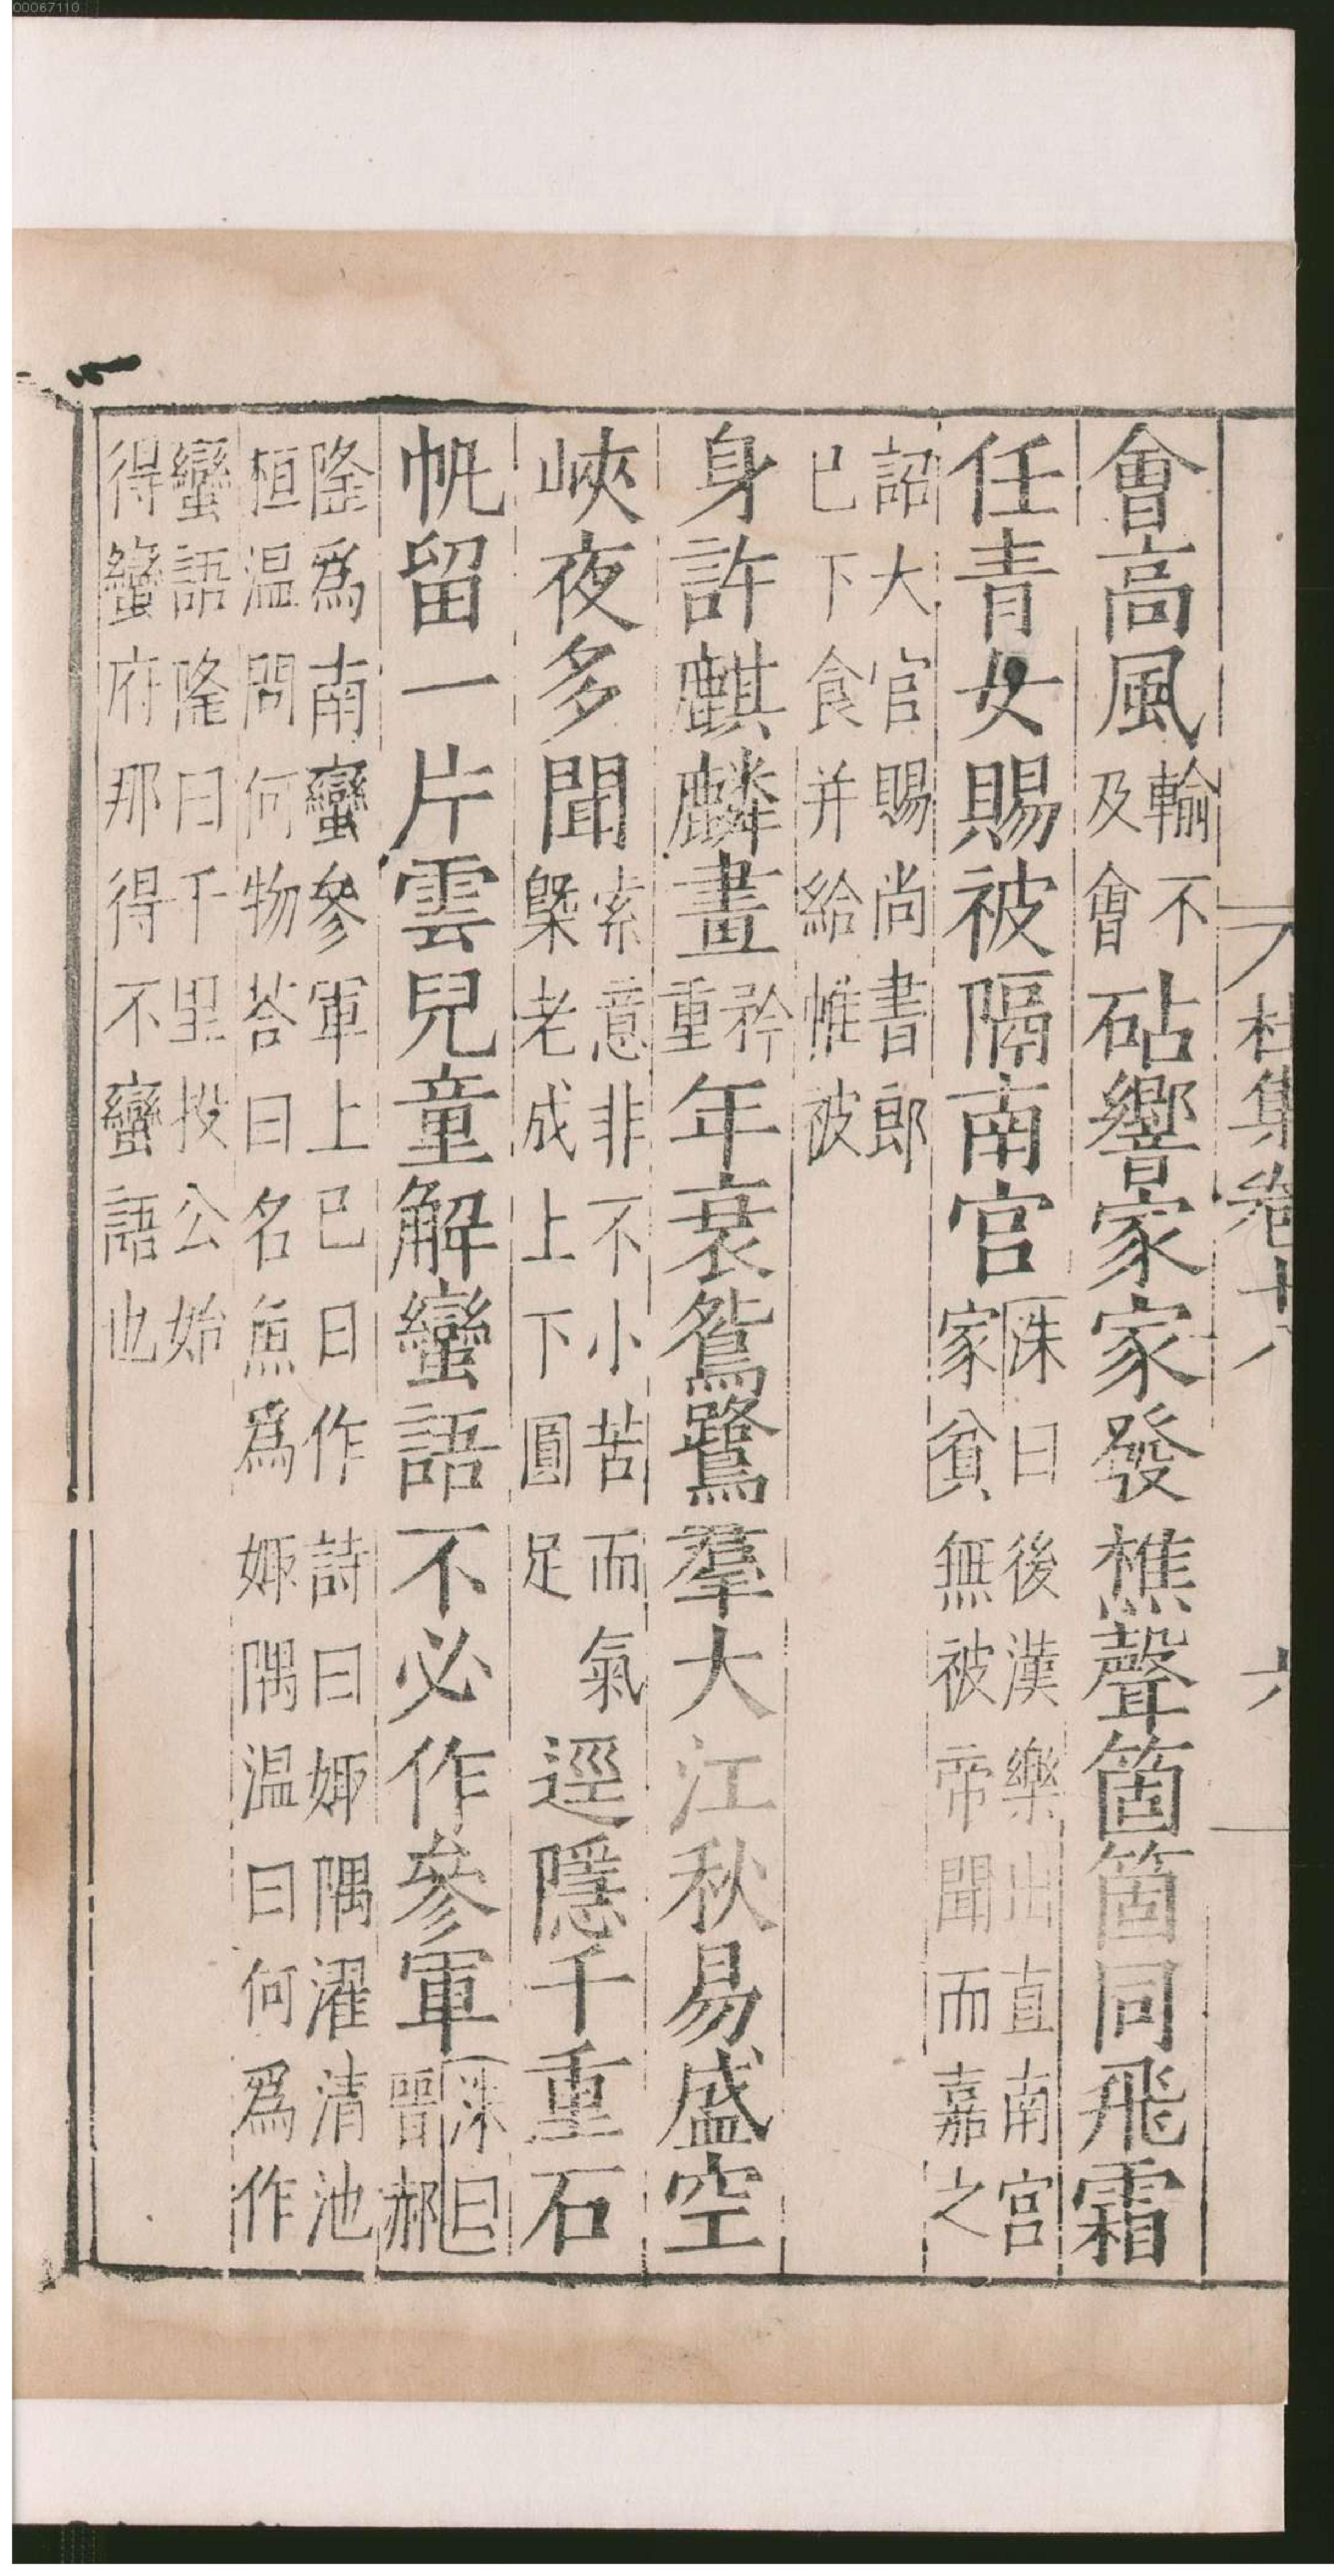 00067110
杜集卷十八 六
會高風輸不及會砧響家家發樵聲箇箇同飛霜
任青女賜被隔南宮洙曰後漢樂出直南宮家貧無被帝聞而嘉之
詔大官賜尚書郎已下食并給帷被
身許麒麟畫矜重年衰鴛鷺羣大江秋易盛空
峽夜多聞索意非不小苦而氣槩老成上下圓足逕隱千重石
帆留一片雲兒童解蠻語不必作參軍洙曰晉郝
隆爲南蠻參軍上巳日作詩曰娵隅濯清池
桓温問何物荅曰名魚爲娵隅温曰何爲作
蠻語隆曰千里投公始
得蠻府那得不蠻語也